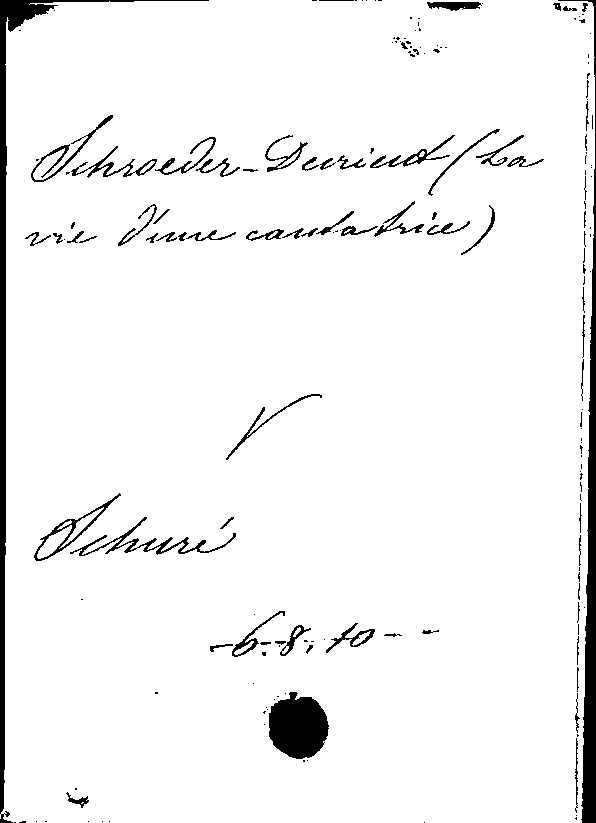 Schroeder-Devrient (La
vie d'une cantatrice)
V
Schuré
-6.8.10--